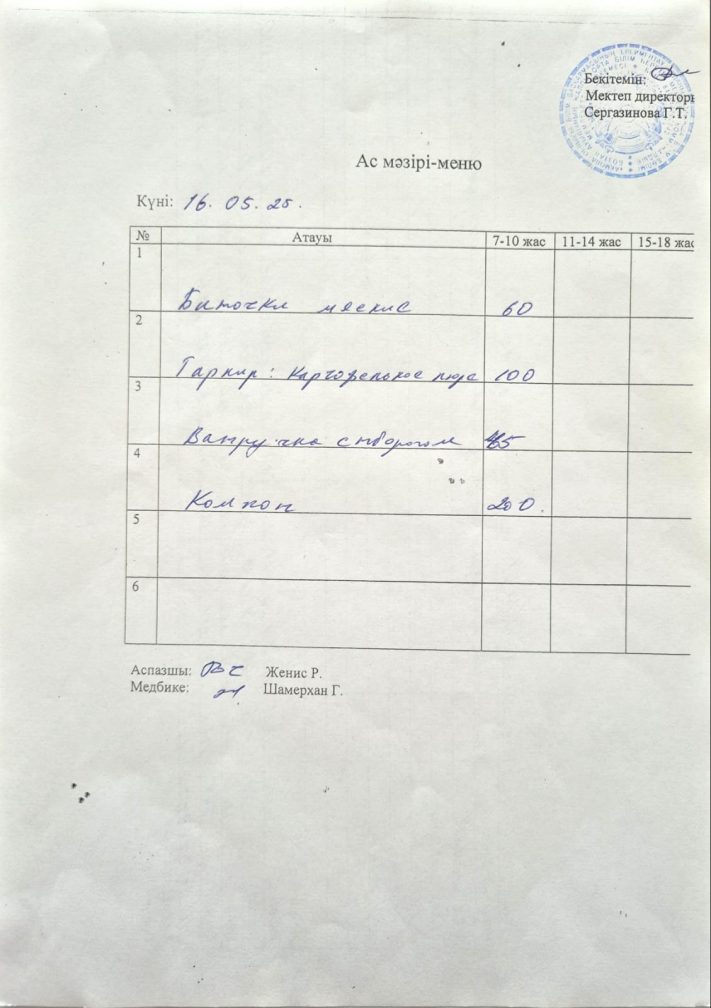 Бекітемін:
Мектеп директоры
Сергазинова Г.Т.
Ас мәзірі-меню
Күні: 16.05.25.
№ Атауы 7-10 жас 11-14 жас 15-18 жас
1 Биточки мясные 60
2 Гарнир: Картофельное пюре 100
3 с творогом
4 Компот 200.
5
6
Аспазшы: Женис Р.
Медбике: Шамерхан Г.